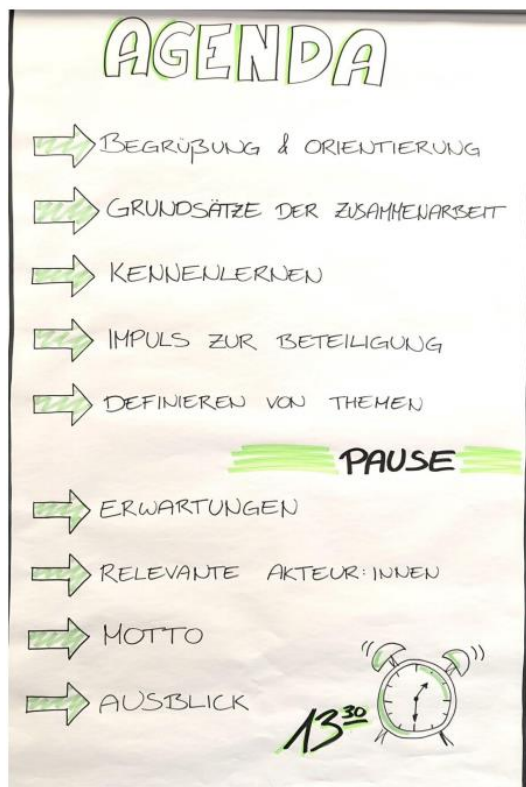 AGENDA
BEGRÜßUNG & ORIENTIERUNG
GRUNDSÄTZE DER ZUSAMMENARBEIT
KENNENLERNEN
IMPULS ZUR BETEILIGUNG
DEFINIEREN VON THEMEN
PAUSE
ERWARTUNGEN
RELEVANTE AKTEUR:INNEN
MOTTO
AUSBLICK
13 30